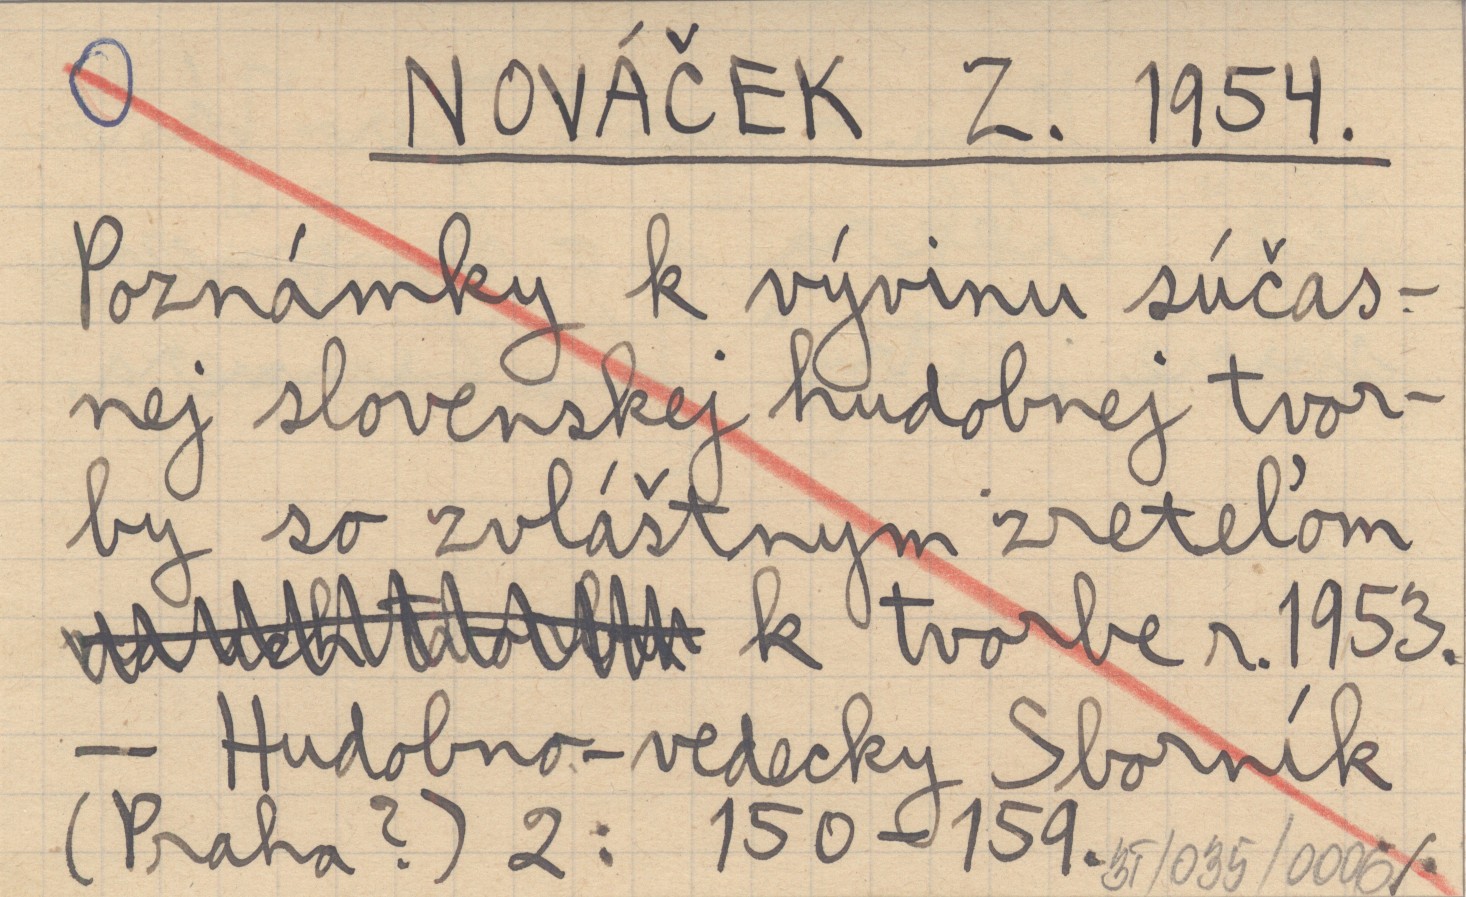 NOVÁČEK Z. 1954.
Poznámky k vývinu súčas-
nej slovenskej hudobnej tvor-
by so zvláštnym zreteľom
k tvorbe r. 1953.
— Hudobno-vedecky Sborník
(Praha?) 2: 150-159.